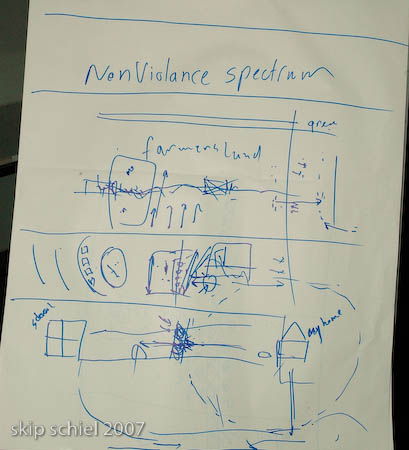 NonViolance spectrum
green
farmersland
school
my home
skip schiel 2007